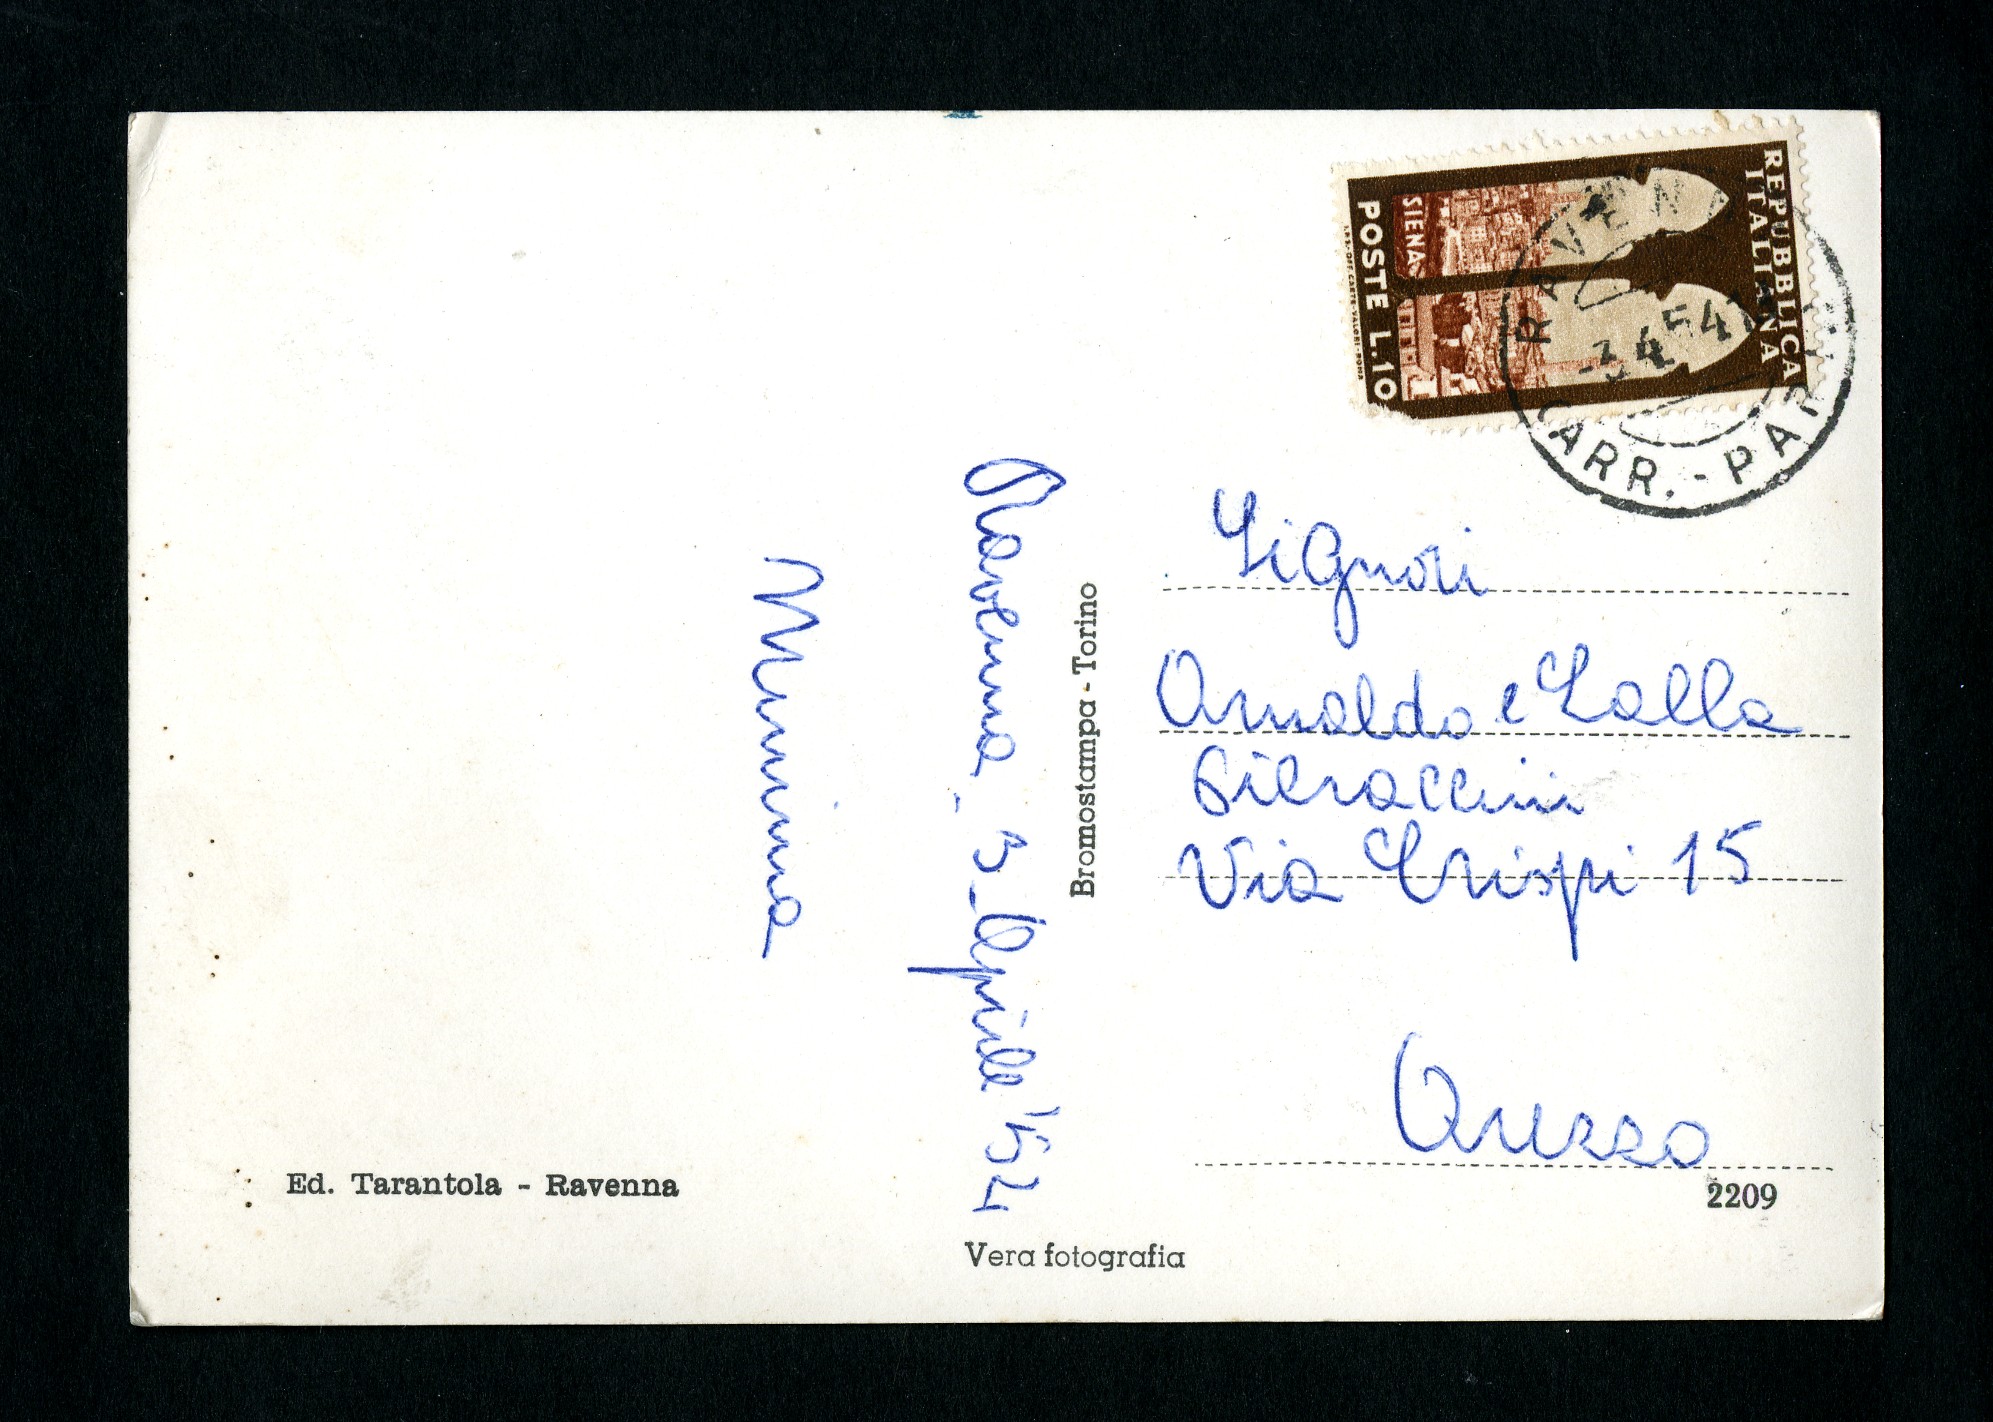 REPUBBLICA
ITALIANA
SIENA
POSTE L.10
RAVENNA
-3.4.54
ARR.-PAR
Ravenna, 3-Aprile '54
Mimma
Bromostampa - Torino
Signori
Arnaldo e Lalla
Via Crispi 15
Arezzo
Ed. Tarantola - Ravenna
2209
Vera fotografia